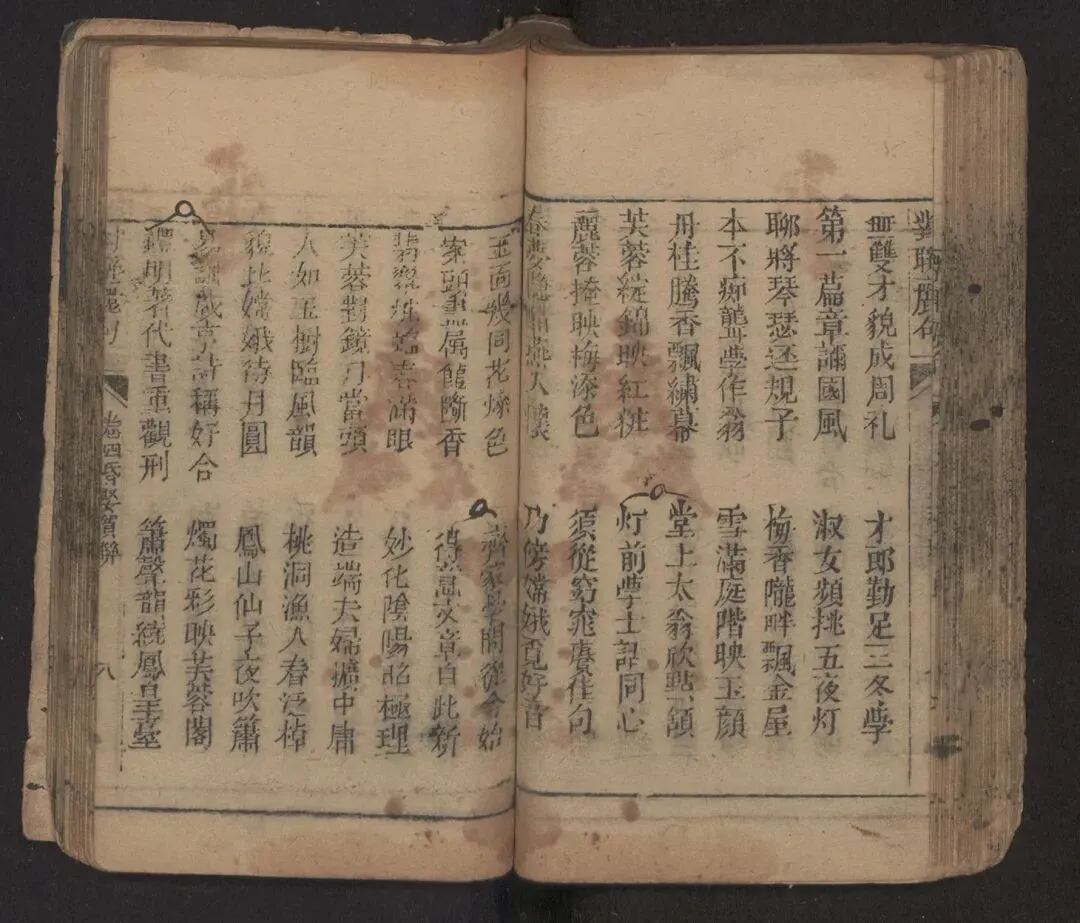 對聯麗句
無雙才貌成周礼 才郎勤足三冬斈
第一萹章誦國風 淑女頻挑五夜灯
聊將琴瑟还規子 梅香隴畔飄金屋
本不痴聾斈作翁 雪滿庭階映玉顔
丹桂騰香飄繡幕 堂上太翁欣點頷
芙蓉綻錦映紅粧 灯前斈士話同心
麗蓉掩映梅添色 須從窈窕賡佳句
春 乃傍嫦娥覓好音
面幾同花燦色 齊家斈問從今始
案頭 属舊隣香 得意文章自此新
翡翠 春滿眼 妙化陰陽昭極理
芙蓉對鏡月當頭 造端夫婦擴中庸
人如玉樹臨風韻 桃洞漁人春泛棹
貌比嫦娥待月圓 鳳山仙子夜吹簫
詩稱好合 燭花彩映芙蓉閣
明著代書重觀刑 簫聲韻繞鳳皇臺
卷四昏娶賀聯 八